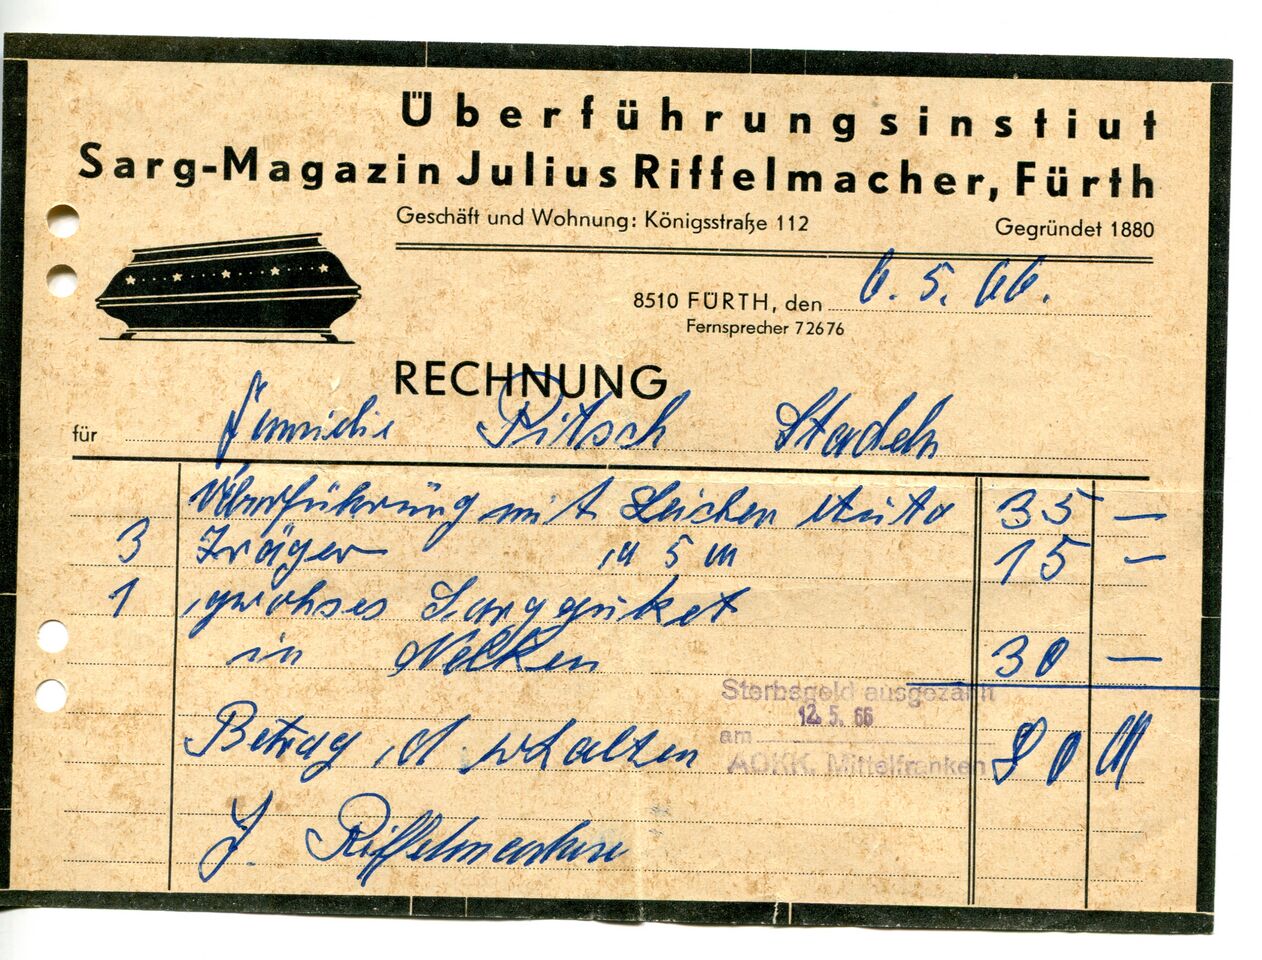 Überführungsinstiut
Sarg-Magazin Julius Riffelmacher, Fürth
Geschäft und Wohnung: Königsstraße 112 Gegründet 1880
8510 FÜRTH, den 6. 5. 66.
Fernsprecher 72676
RECHNUNG
für Familie Pitsch Stadeln
Überführung mit Leichen Auto 35 —
3 Träger à 5 M 15 —
1 großes
in Nelken 30 —
Sterbegeld ausgezahlt
12. 5. 66
am
AOKK. Mittelfranken
Betrag d. erhalten 80 M
J. Riffelmacher